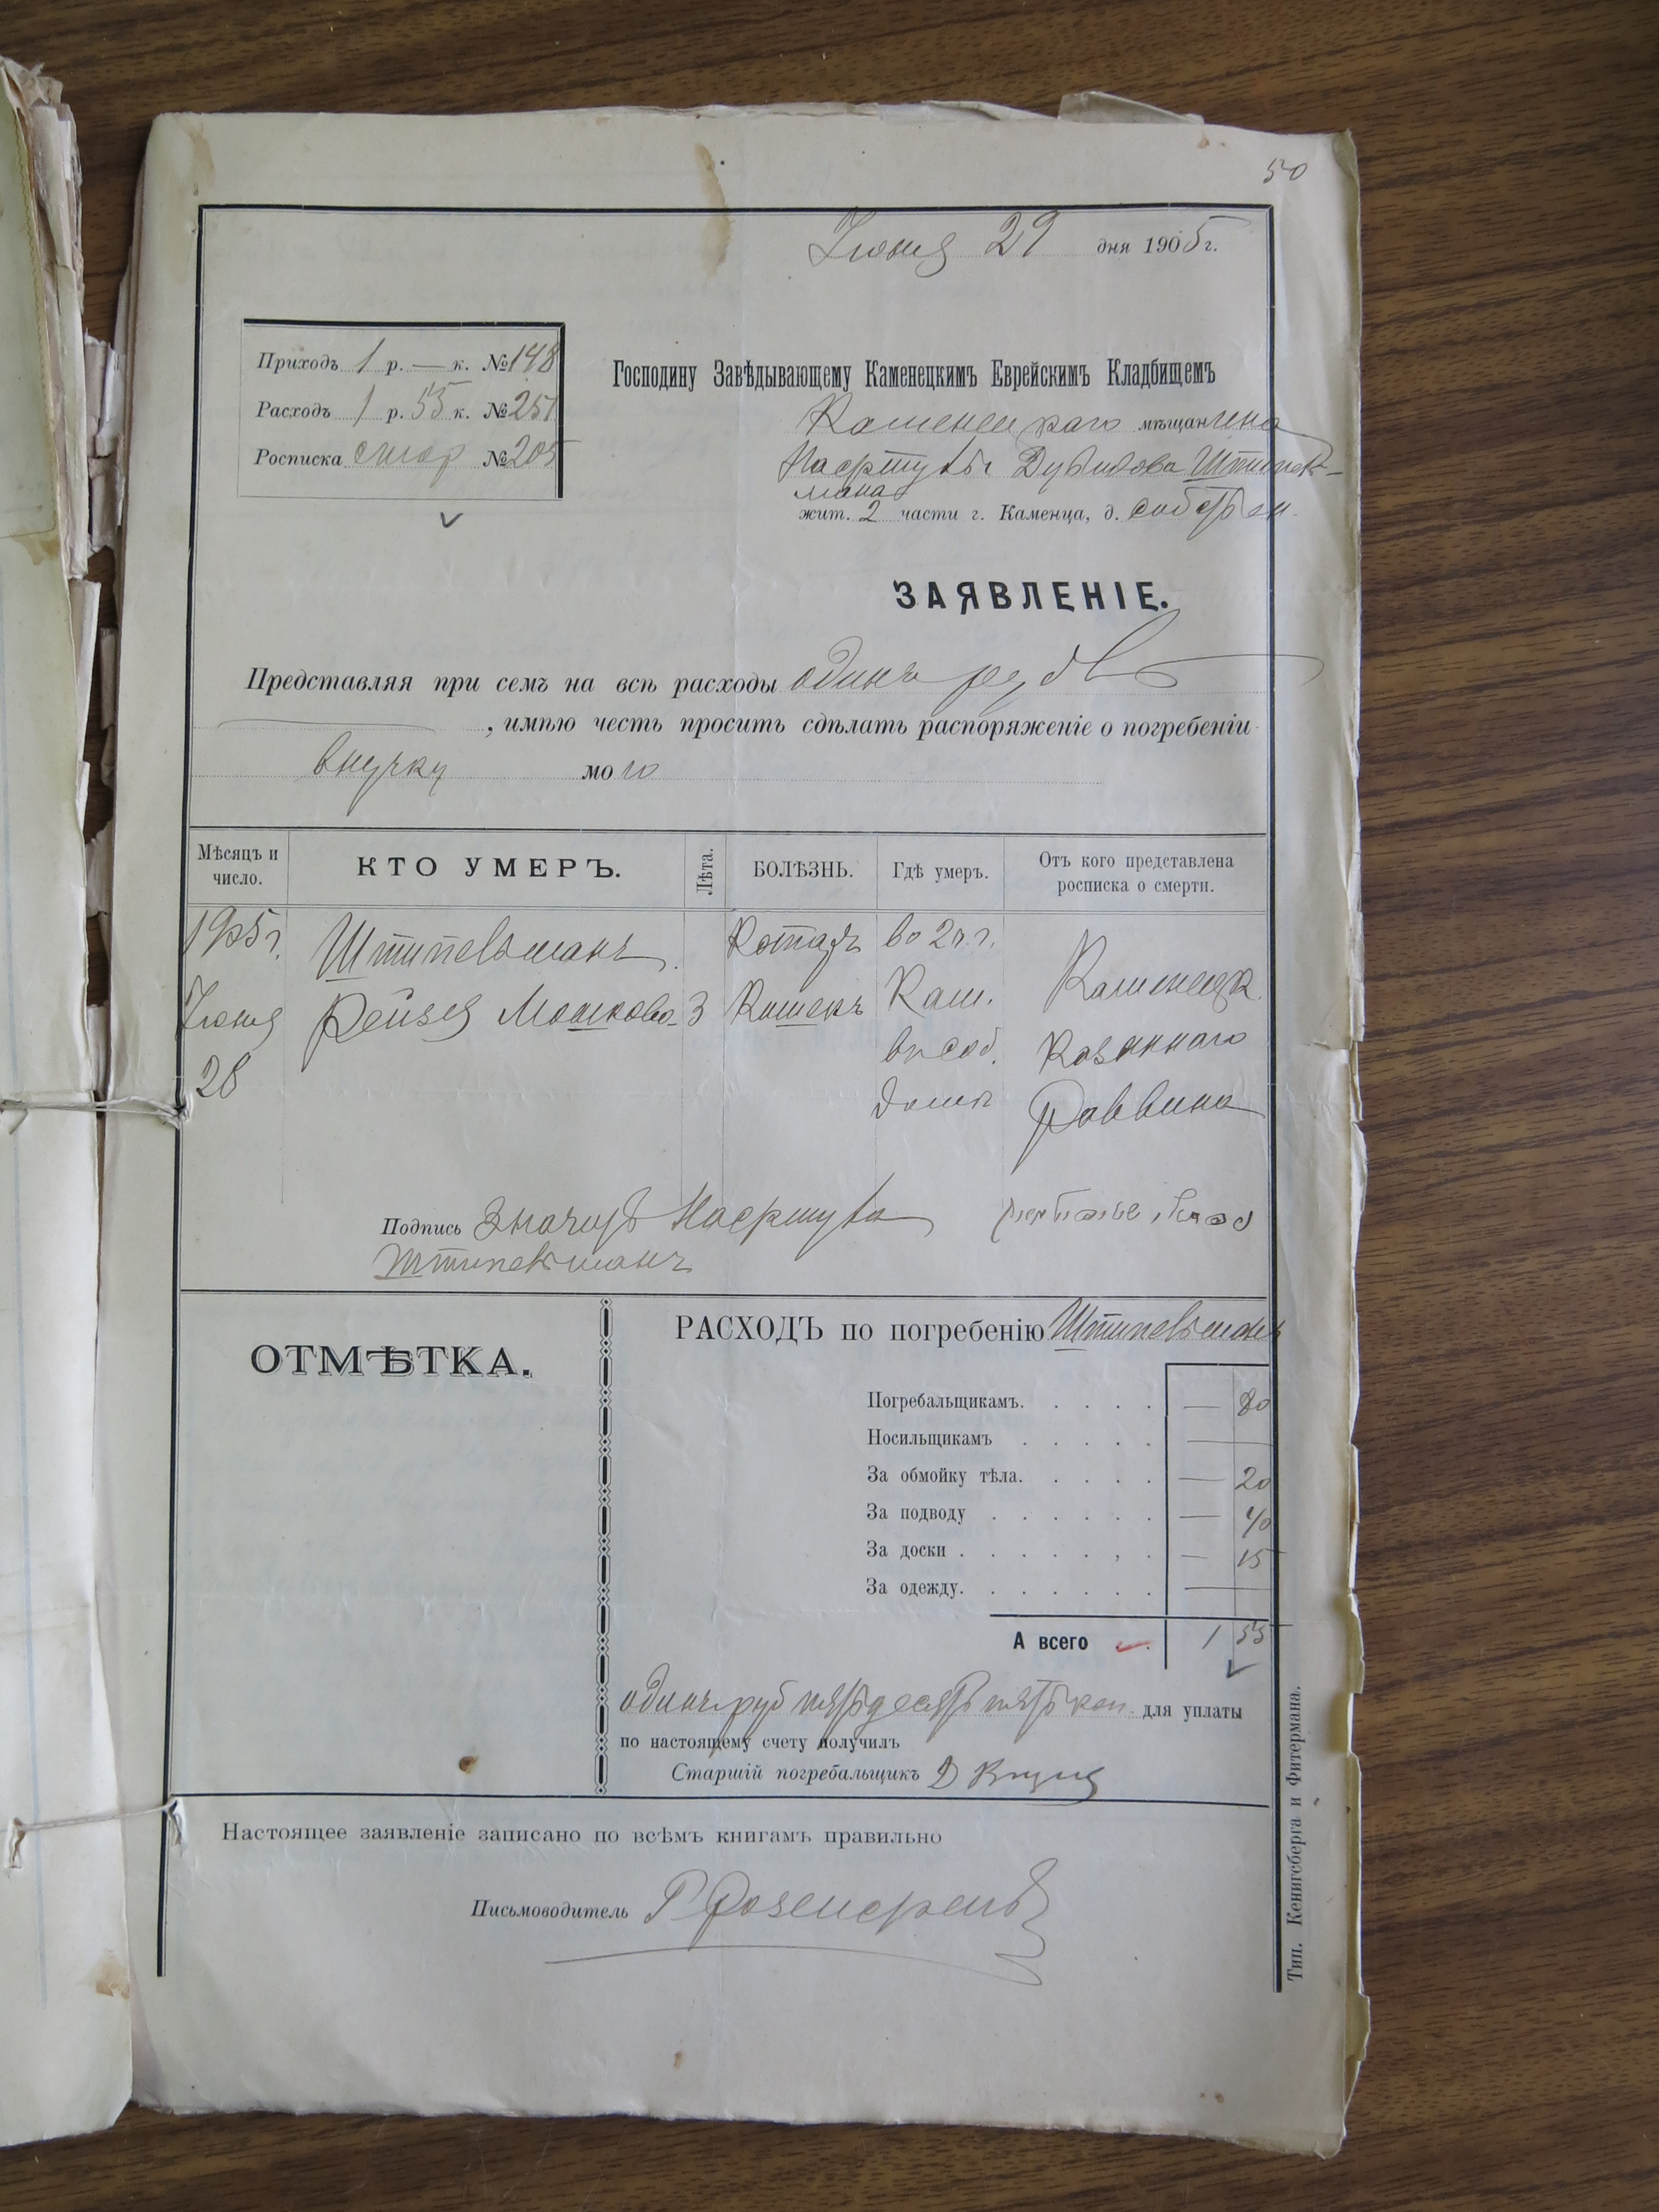 50
Іюня 29 дня 1905 г.
Приходъ 1 р. — к. № 148
Расходъ 1 р. 55 к. № 251
Росписка № 205
Господину Завѣдывающему Каменецкимъ Еврейскимъ Кладбищемъ
Каменецкаго мѣщанина
Дувидова Штипель-
мана
жит. 2 части г. Каменца, д. собств.
ЗАЯВЛЕНІЕ.
Представляя при семъ на всѣ расходы одинъ рубль
, имѣю честь просить сдѣлать распоряженіе о погребеніи
внучку мого
Мѣсяцъ и число.
КТО УМЕРЪ.
Лѣта.
БОЛѢЗНЬ.
Гдѣ умеръ.
Отъ кого представлена росписка о смерти.
1905 г. Штипельманъ Катаръ во 2 ч. г.
Іюня Рейзя Мошкова 3 Кишекъ Кам. Каменецк.
28 въ соб. Казеннаго
домѣ Раввина
Подпись
Штипельманъ
ОТМѢТКА.
РАСХОДЪ по погребенію Штипельманъ
Погребальщикамъ. — 80
Носильщикамъ —
За обмойку тѣла. — 20
За подводу — 40
За доски — 15
За одежду. —
А всего 1 55
одинъ руб пятьдесятъ пять коп. для уплаты
по настоящему счету получилъ
Старшій погребальщикъ Д
Настоящее заявленіе записано по всѣмъ книгамъ правильно
Письмоводитель Г Розенгрень
Тип. Кенигсберга и Фитермана.